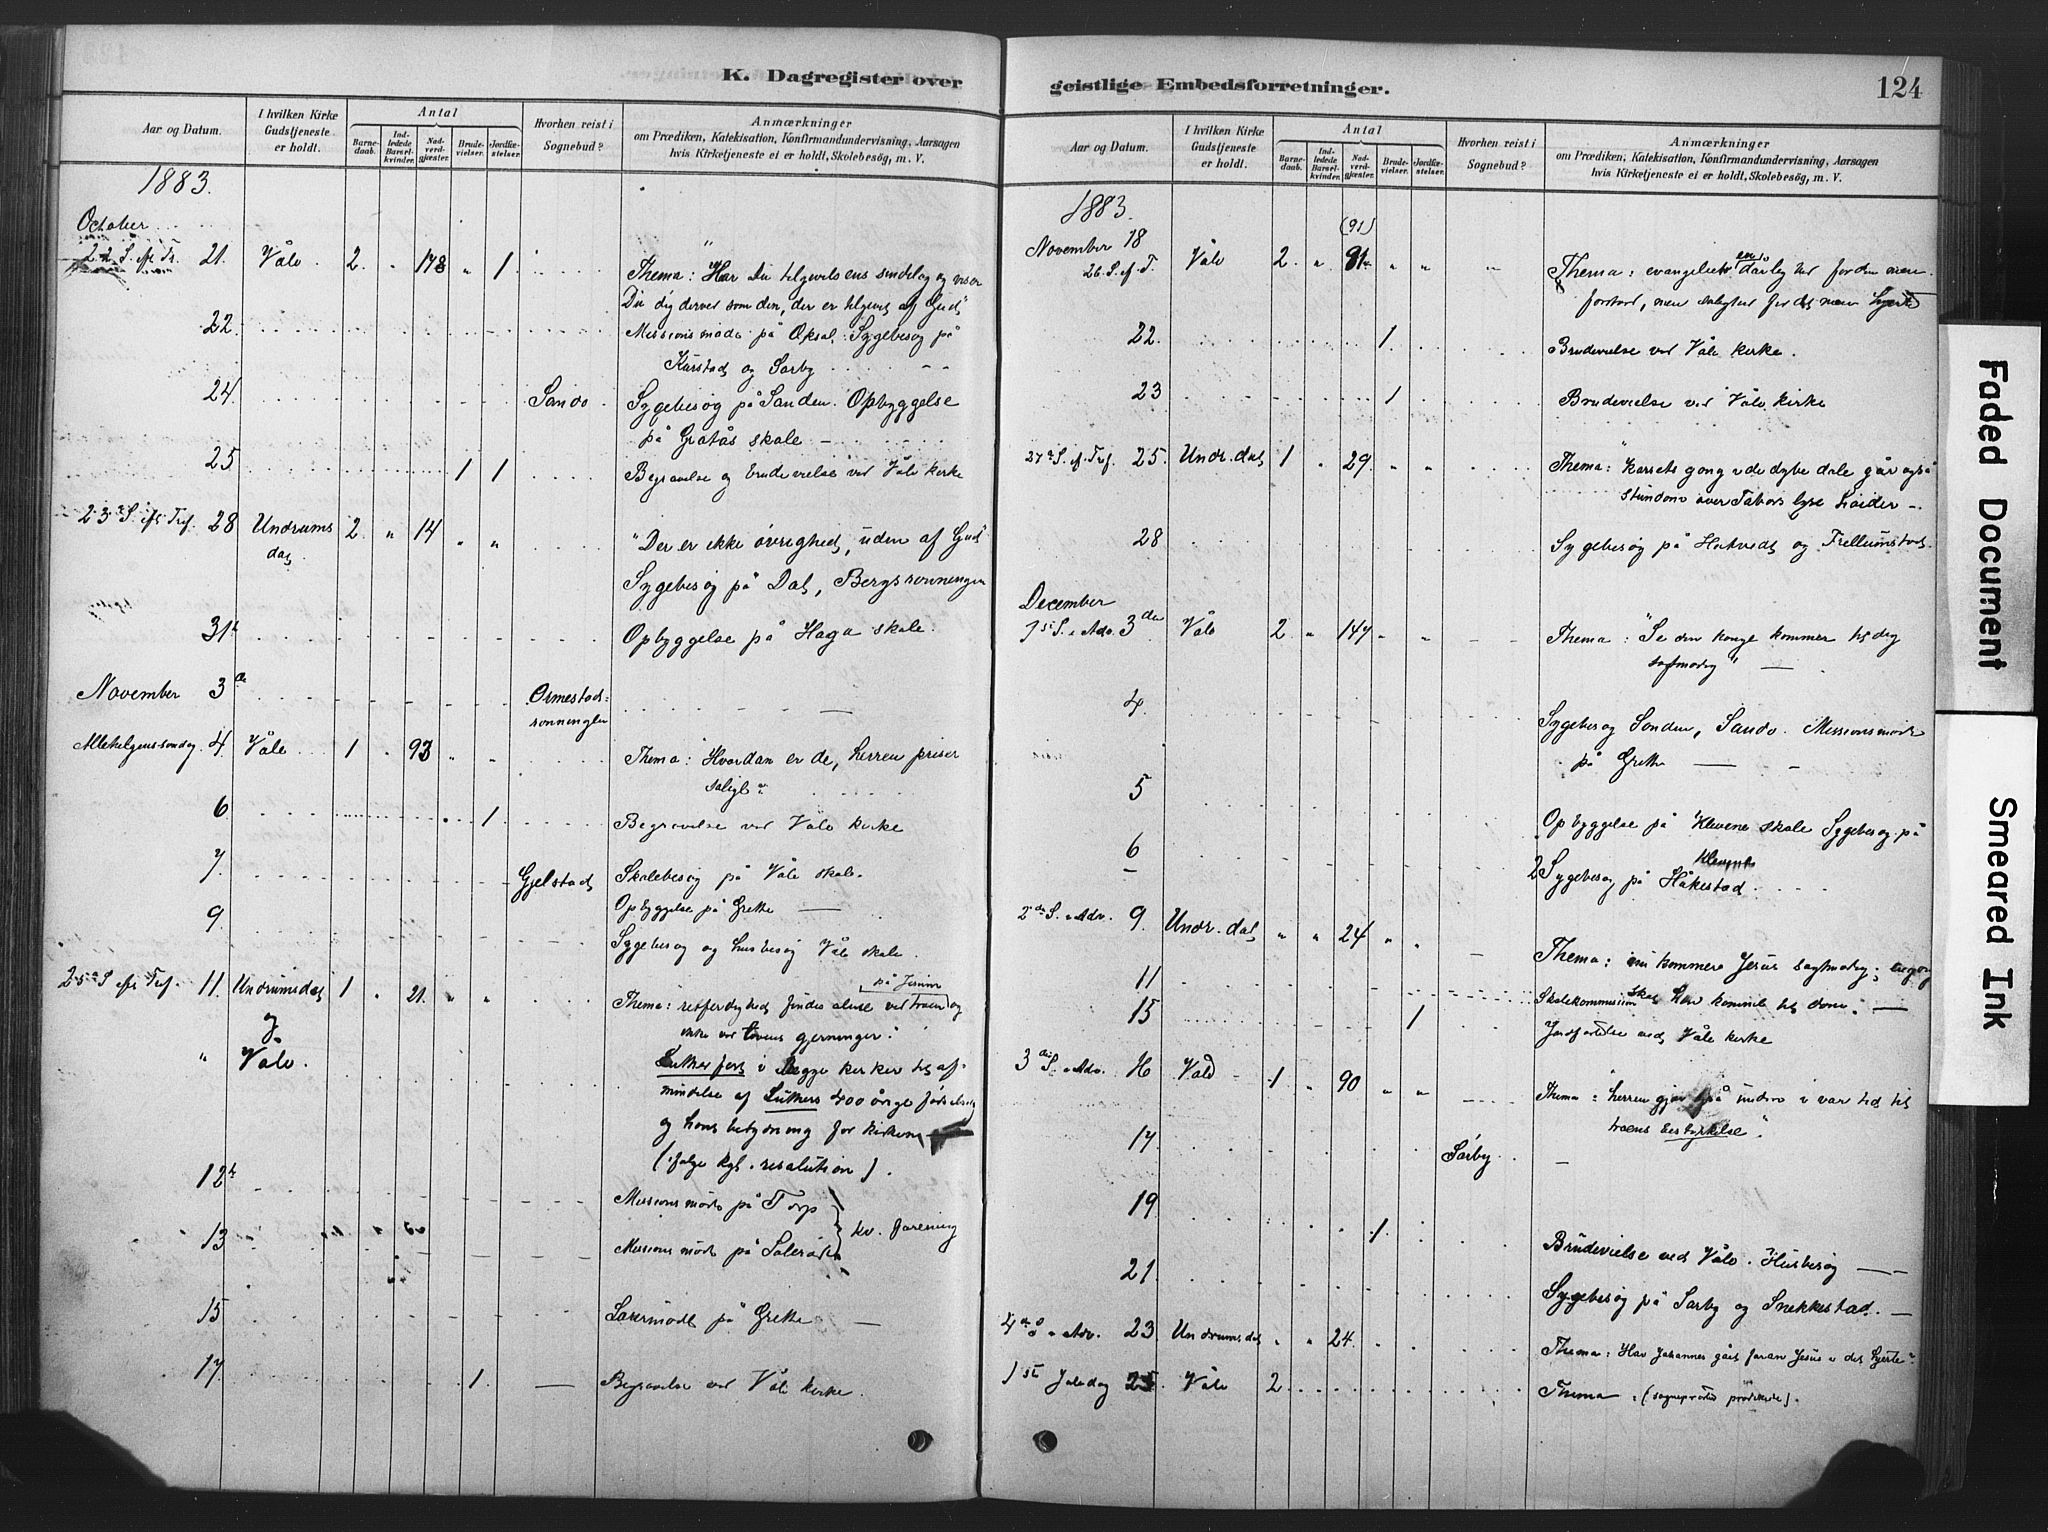 K. Dagregister over
geistlige Embedsforretninger.
124
Aar og Datum.
I hvilken Kirke Gudstjeneste er holdt.
Antal
Barnedaab.
Indledede Barselkvinder.
Nadverdgjæster.
Brudevielser.
Jordfæstelser.
Hvorhen reist i Sognebud?
Anmærkninger
om Prædiken, Katekisation, Konfirmandundervisning, Aarsagen
hvis Kirketjeneste ei er holdt, Skolebesøg, m. V.
1883.
October
22 S. eft Tr. 21. Våle. 2. " 178 " 1
Thema: "Har Du tilgivelsens sindelag og viser
Du dig derved som den, der er tilgivet af Gud"
22. Missionsmøde på Oksal. Sygebesøg på
Kurstad og Sørby
24 Sande. Sygebesøg på Sanden. Opbyggelse
på Gretås skole —
25 1 1 Begravelse og brudevielse ved Våle kirke
23 S. eft Tref. 28 Undrumsdal 2. " 14 " "
"Der er ikke øvrighed, uden af Gud"
Sygebesøg på Dal, Bergsrønningen
31te Opbyggelse på Haga skole.
November 3de Ormestadrønningen
Allehelgenssøndag 4 Våle 1 93 " "
Thema: Hvordan er de, herren priser
salige
6 1 Begravelse ved Våle kirke
7. Gjelstad Skolebesøg på Våle skole
Opbyggelse på Grette —
9 Sygebesøg og husbesøg Våle skole.
25 S eft Tref. 11. Undrumsdal 1 " 21. " "
og
" Våle.
på Jesum
Thema: retferdighed findes alene ved troen og
ikke ved lovens gjerninger.
Lutherfest i begge kirker til af-
mindelse af Luthers 400 årige fødselsdag
og hans betydning for kirken
(ifølge kgl. resolution).
12te Missionsmøde på Torp
13 Missionsmøde på Solerød
kv. forening
15 Lærermøde på Grette —
17 1. — Begravelse ved Våle kirke.
Aar og Datum.
I hvilken Kirke Gudstjeneste er holdt.
Antal
Barnedaab.
Indledede Barselkvinder.
Nadverdgjæster.
Brudevielser.
Jordfæstelser.
Hvorhen reist i Sognebud?
Anmærkninger
om Prædiken, Katekisation, Konfirmandundervisning, Aarsagen
hvis Kirketjeneste ei er holdt, Skolebesøg, m. V.
1883.
(91)
November 18
26. S. ef. T. Våle 2 " 91 " "
Thema: evangeliets dårlighed for den men.
forstand, men salighed for det men. hjerte
22. 1. Brudevielse ved Våle kirke.
23 1 Brudevielse ved Våle kirke
27 S. ef. Tref. 25. Undr.dal 1 " 29. " "
Thema: "Korsets gang i de dybe dale går også
stundom over Tabors lyse høider —.
28 Sygebesøg på Hakveds og Trellumstad.
December
1st S. i Adv. 3den Våle 2 " 147 " "
Thema: "Se din konge kommer til dig
sagtmodig" —
4. Sygebesøg Sonden, Sande. Missionsmøde
på Grette — -
5 Opbyggelse på Klevene skole Sygebesøg på
Klevene
6 2 Sygebesøg på Håkestad.
2den S. i Adv. 9. Undr.dal " " 24 " "
Thema: nu kommer Jesus sagtmodig;
11 Skolekommission
15 1 Jordfæstelse ved Våle kirke
3die S. i Adv. 16 Våle 1 " 90 " "
Thema: herren gjør også under i vor tid til
troens bestyrkelse".
17 Sørby. —
19 1. Brudevielse ved Våle. Husbesøg ——
21. Sygebesøg på Sørby og Snekkestad. —
4de S. i Adv. 23 Undrumsdal " " 24. "
Thema: Har Johannes gået foran Jesus i dit hjerte?
1ste Juledag 25 Våle 2.
Thema: (sognepresten prædikede).
Faded Document
Smeared Ink